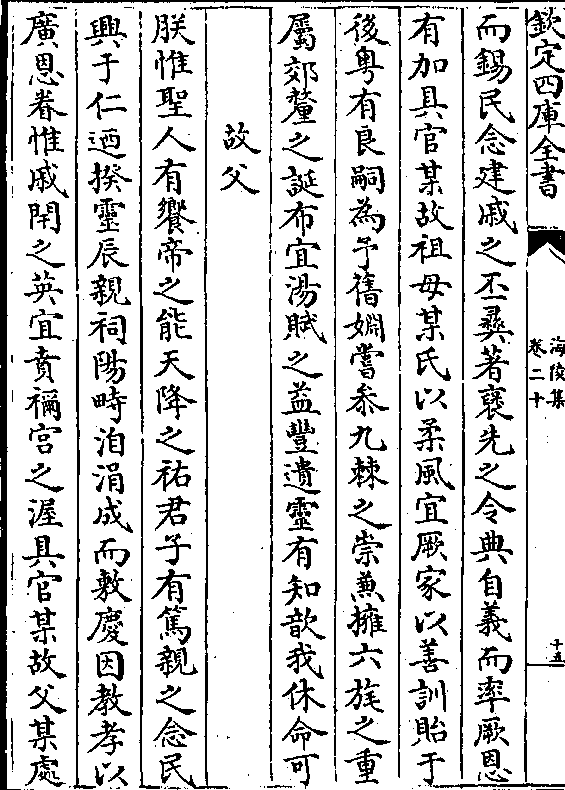 欽定四庫全書
海陵集
卷二十
十五
而錫民念建戚之丕彞著褒先之令典自義而率厥恩
有加具官某故祖母某氏以柔風宜厥家以善訓貽于
後粤有良嗣為予舊婣嘗叅九棘之崇兼擁六旄之重
屬郊釐之誕布宜湯賦之益豐遺靈有知歆我休命可
故父
朕惟聖人有饗帝之能天降之祐君子有篤親之念民
興于仁廼揆靈辰親祠陽畤洎涓成而敷慶因教孝以
廣恩眷惟戚閈之英宜賁禰宫之渥具官某故父某處